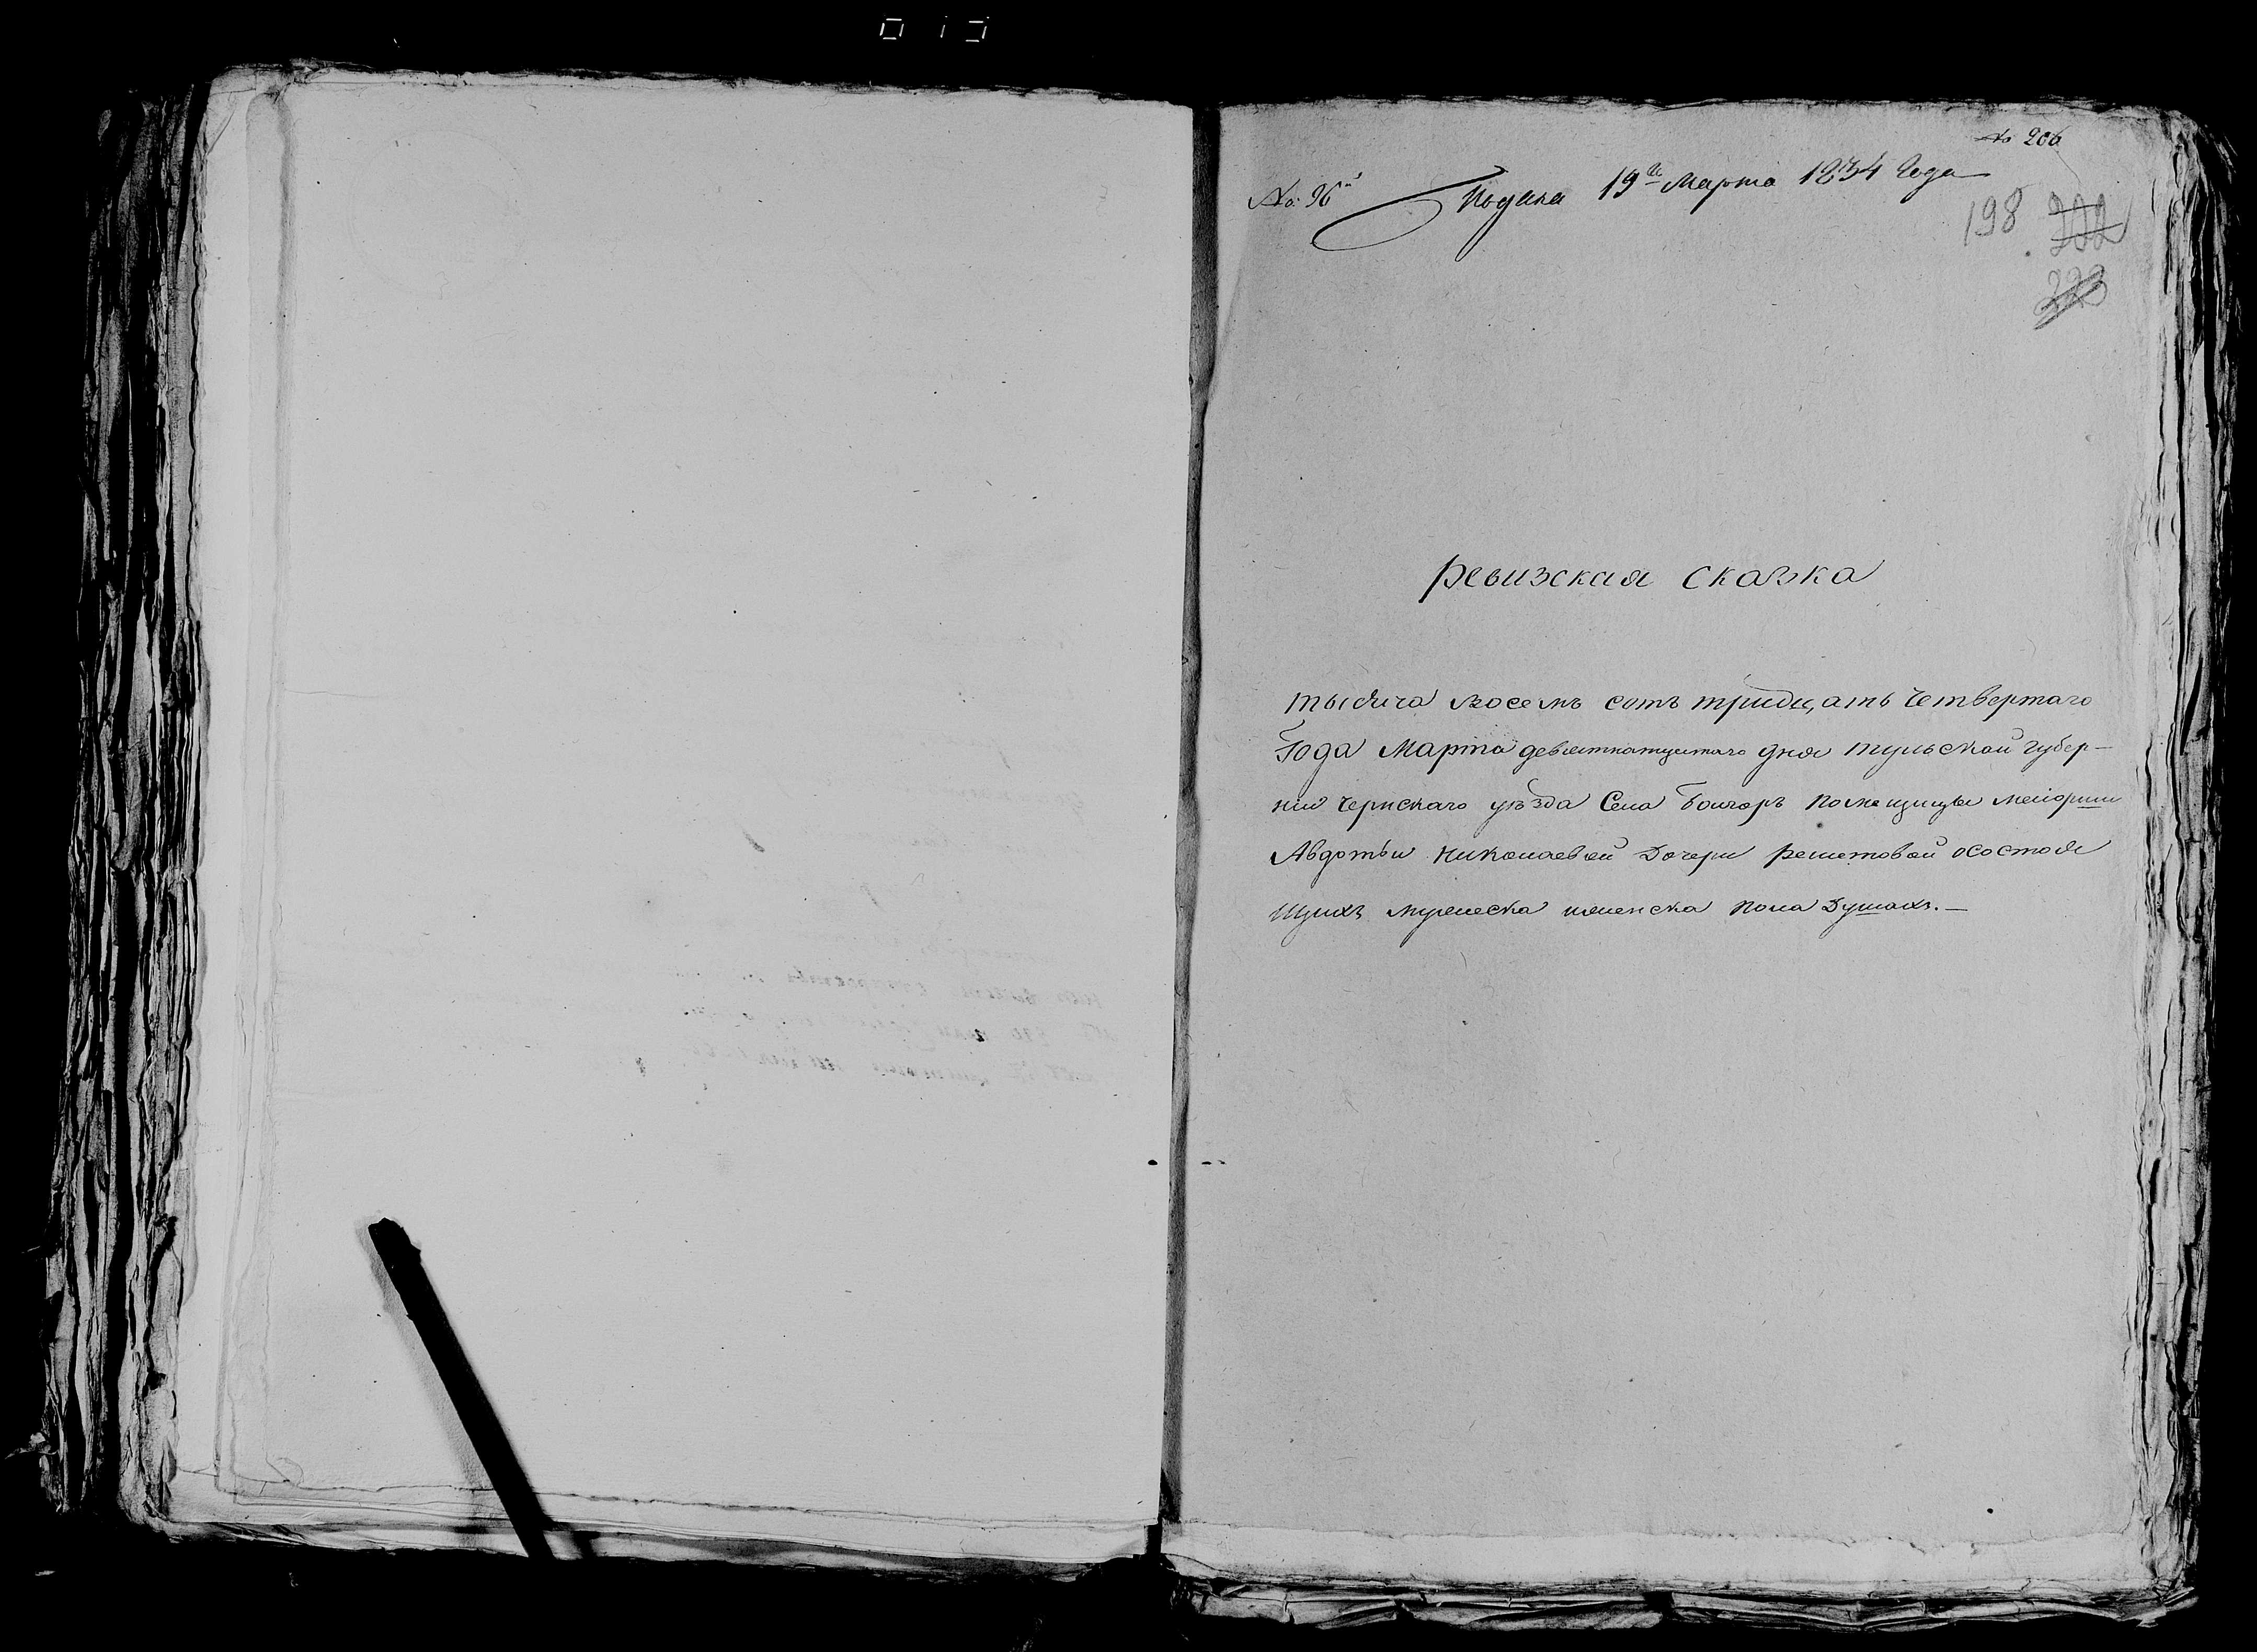 № 206
№: 96й Подана 19го Марта 1834 Года
198 202
223
Ревизская сказка
тысяча восемь сотъ тридцать четвертаго
Года Марта девятнатцатаго дня тульской губер-
нии Чернскаго уѣзда Села помещицы маіорши
Авдотьи Николаевой Дочери Решетовой осостоя
щихъ мужеска иженска пола Душахъ.—